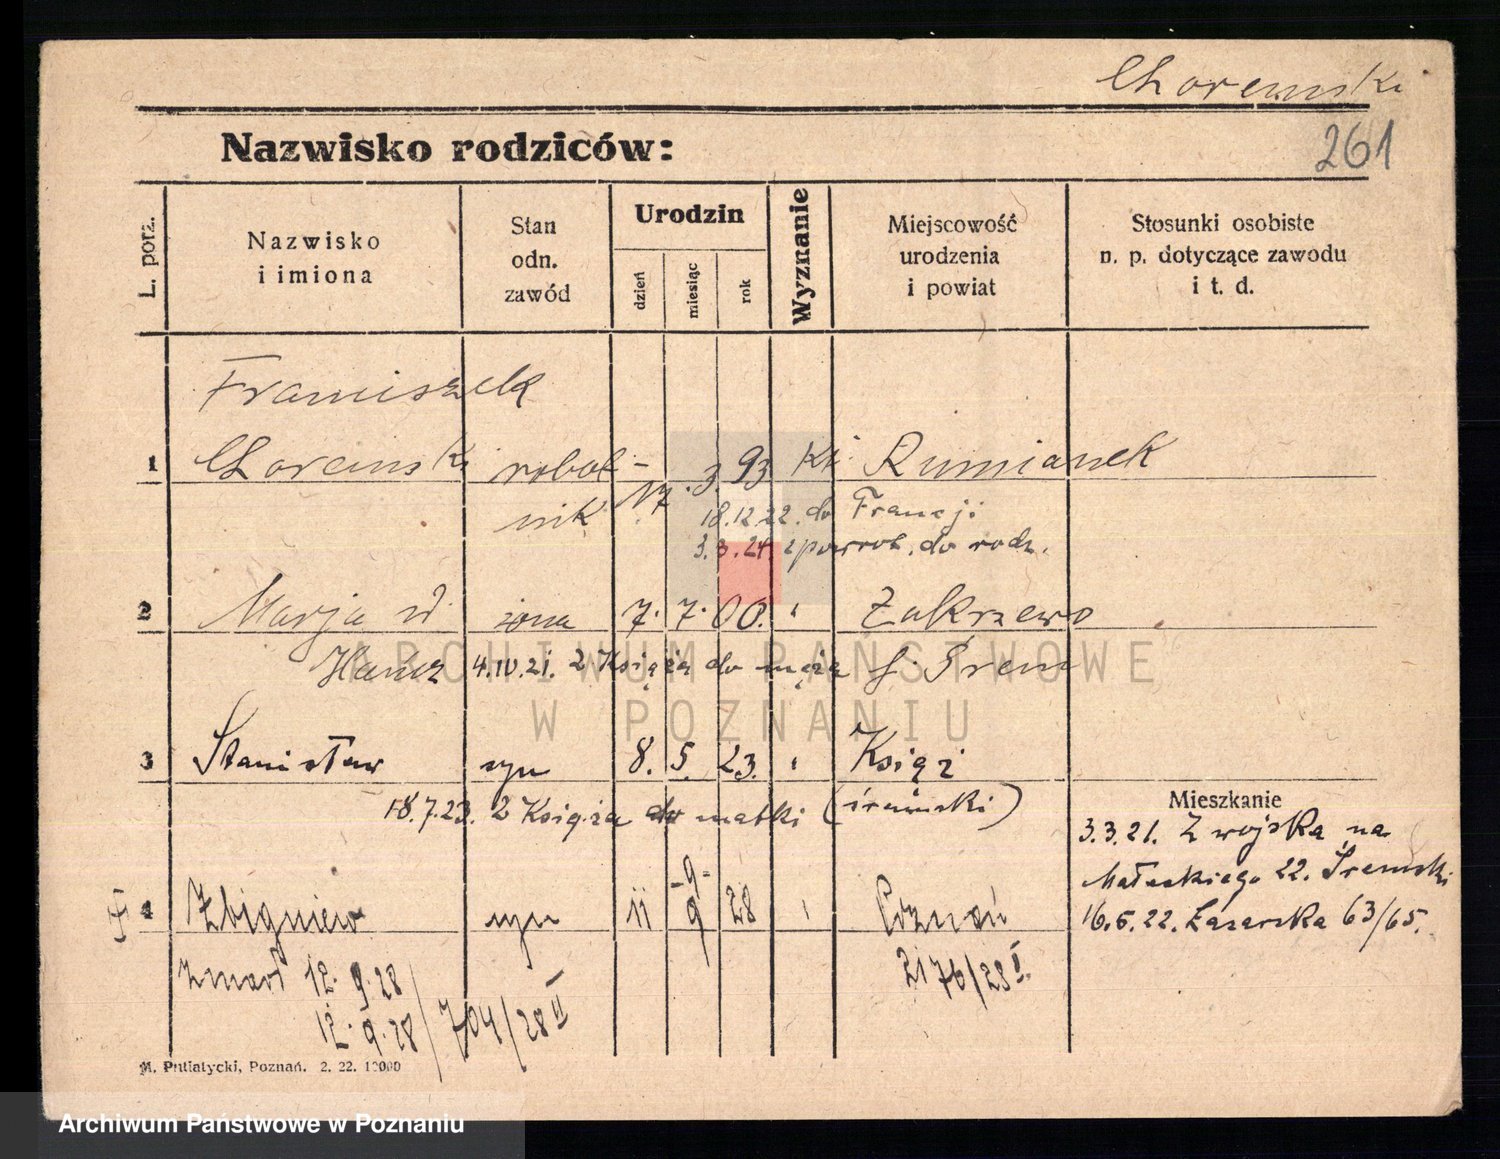 Choremski
261
Nazwisko rodziców:
L. porz.
Nazwisko
i imiona
Stan
odn.
zawód
Urodzin
dzień
miesiąc
rok
Wyznanie
Miejscowość
urodzenia
i powiat
Stosunki osobiste
n. p. dotyczące zawodu
i t. d.
Franciszek
1 Choremski robot- 17. 3. 93 Kt. Rumianek
nik
18.12.22. do Francji
3.3.24. z powrot. do rodz.
2 Marja żona 7. 7. 00. " Zakrzewo
4.IV.21. z Książa do męża Śrem
3 Stanisław syn 8. 5. 23. " Książ
18.7.23. z Książa do matki (śremski)
Mieszkanie
3.3.21. Z wojska na
22. Śremski
16.6.22. Łazarska 63/65.
4 Zbigniew syn 11 9 28 " Poznań
-9-
2176/28 I.
zmarł 12. 9. 28
12. 9. 28 / 704/28 II
M. Putiatycki, Poznań. 2. 22. 10000
ARCHIWUM PAŃSTWOWE
W POZNANIU
Archiwum Państwowe w Poznaniu